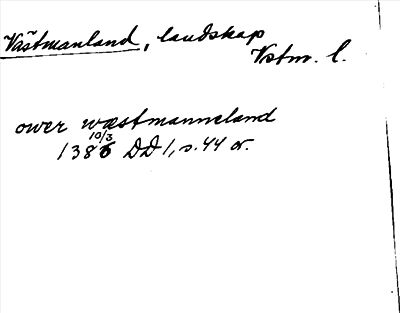 Västmanland, landskap
Vstm. l.
ower wæstmanneland
10/3
1386 DD 1, s. 44 or.